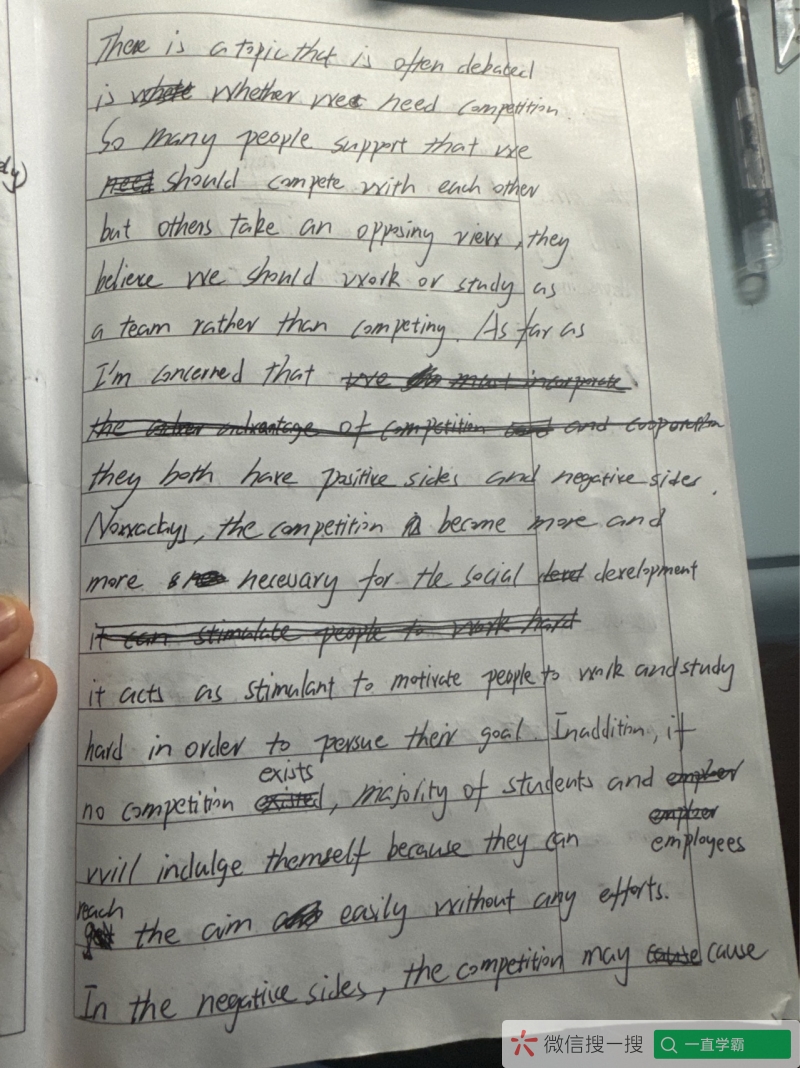 There is a topic that is often debated
is whether we need competition.
So many people support that we
need should compete with each other
but others take an opposing view, they
believe we should work or study as
a team rather than competing. As far as
I'm concerned that we must incorporate
the advantage of competition and cooperation
they both have positive sides and negative sides.
Nowadays, the competition become more and
more necessary for the social development
it can stimulate people to work hard
it acts as stimulant to motivate people to work and study
hard in order to persue their goal. Inaddition, if
exists
no competition existed, majority of students and
employees
will indulge themself because they can
reach
the aim easily without any efforts.
In the negative sides, the competition may cause cause
dy)
微信搜一搜
一直学霸